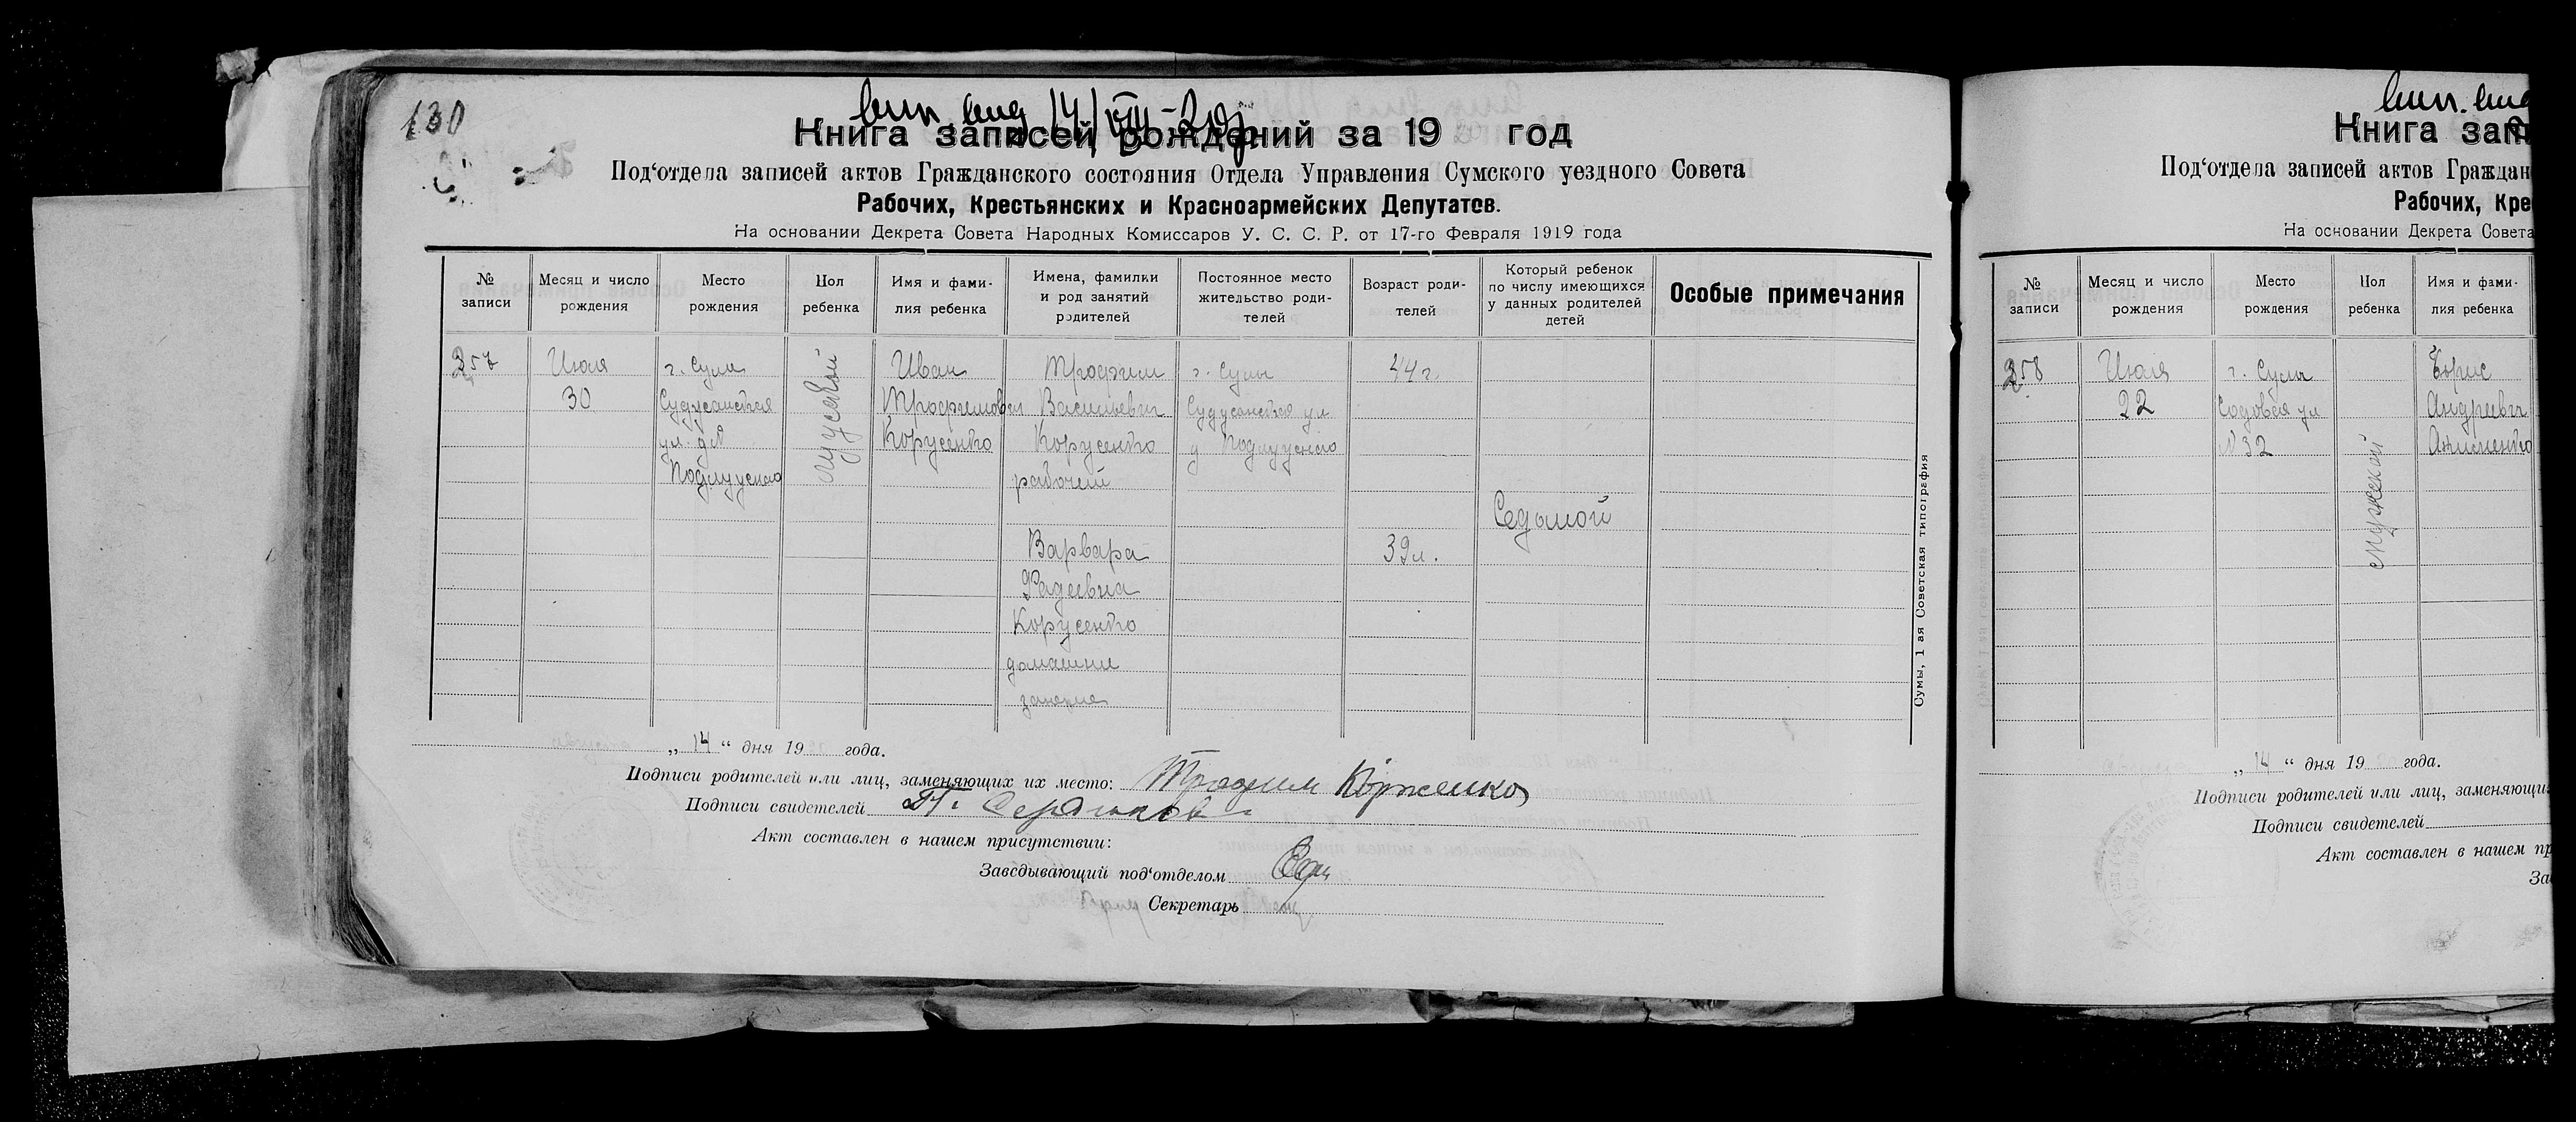 130
14/VIII-20 г
Книга записей рождений за 19 год
Под‘отдела записей актов Гражданского состояния Отдела Управления Сумского уездного Совета
Рабочих, Крестьянских и Красноармейских Депутатов.
На основании Декрета Совета Народных Комиссаров У. С. С. Р. от 17-го Февраля 1919 года
№ записи
Месяц и число рождения
Место рождения
Пол ребенка
Имя и фами-
лия ребенка
Имена, фамилии
и род занятий
родителей
Постоянное место
жительство роди-
телей
Возраст роди-
телей
Который ребенок
по числу имеющихся
у данных родителей
детей
Особые примечания
257
Июля
30
г. Сумы
ул. д.
мужской
Иван
Трофимович
Корженко
Трофим
Васильевич
Корженко
рабочий
Варвара
Фадеевна
Корженко
домашние
г. Сумы
ул.
44 г.
39 л.
Седьмой
Сумы, 1-ая Советская типография
„ 14 “ дня 19 года.
Подписи родителей или лиц, заменяющих их место: Трофим Корженко
Подписи свидетелей
Акт составлен в нашем присутствии:
Заведывающий под‘отделом
Секретарь
Книга зап
Под‘отдела записей актов Граждан
Рабочих, Кре
На основании Декрета Совета
№ записи
Месяц и число рождения
Место рождения
Пол ребенка
Имя и фами-
лия ребенка
258
Июля
22
г. Сумы
Садовая ул
№ 32
мужской
Борис
Андреевич
„ 14 “ дня 19 года.
Подписи родителей или лиц, заменяющи
Подписи свидетелей
Акт составлен в нашем пр
За